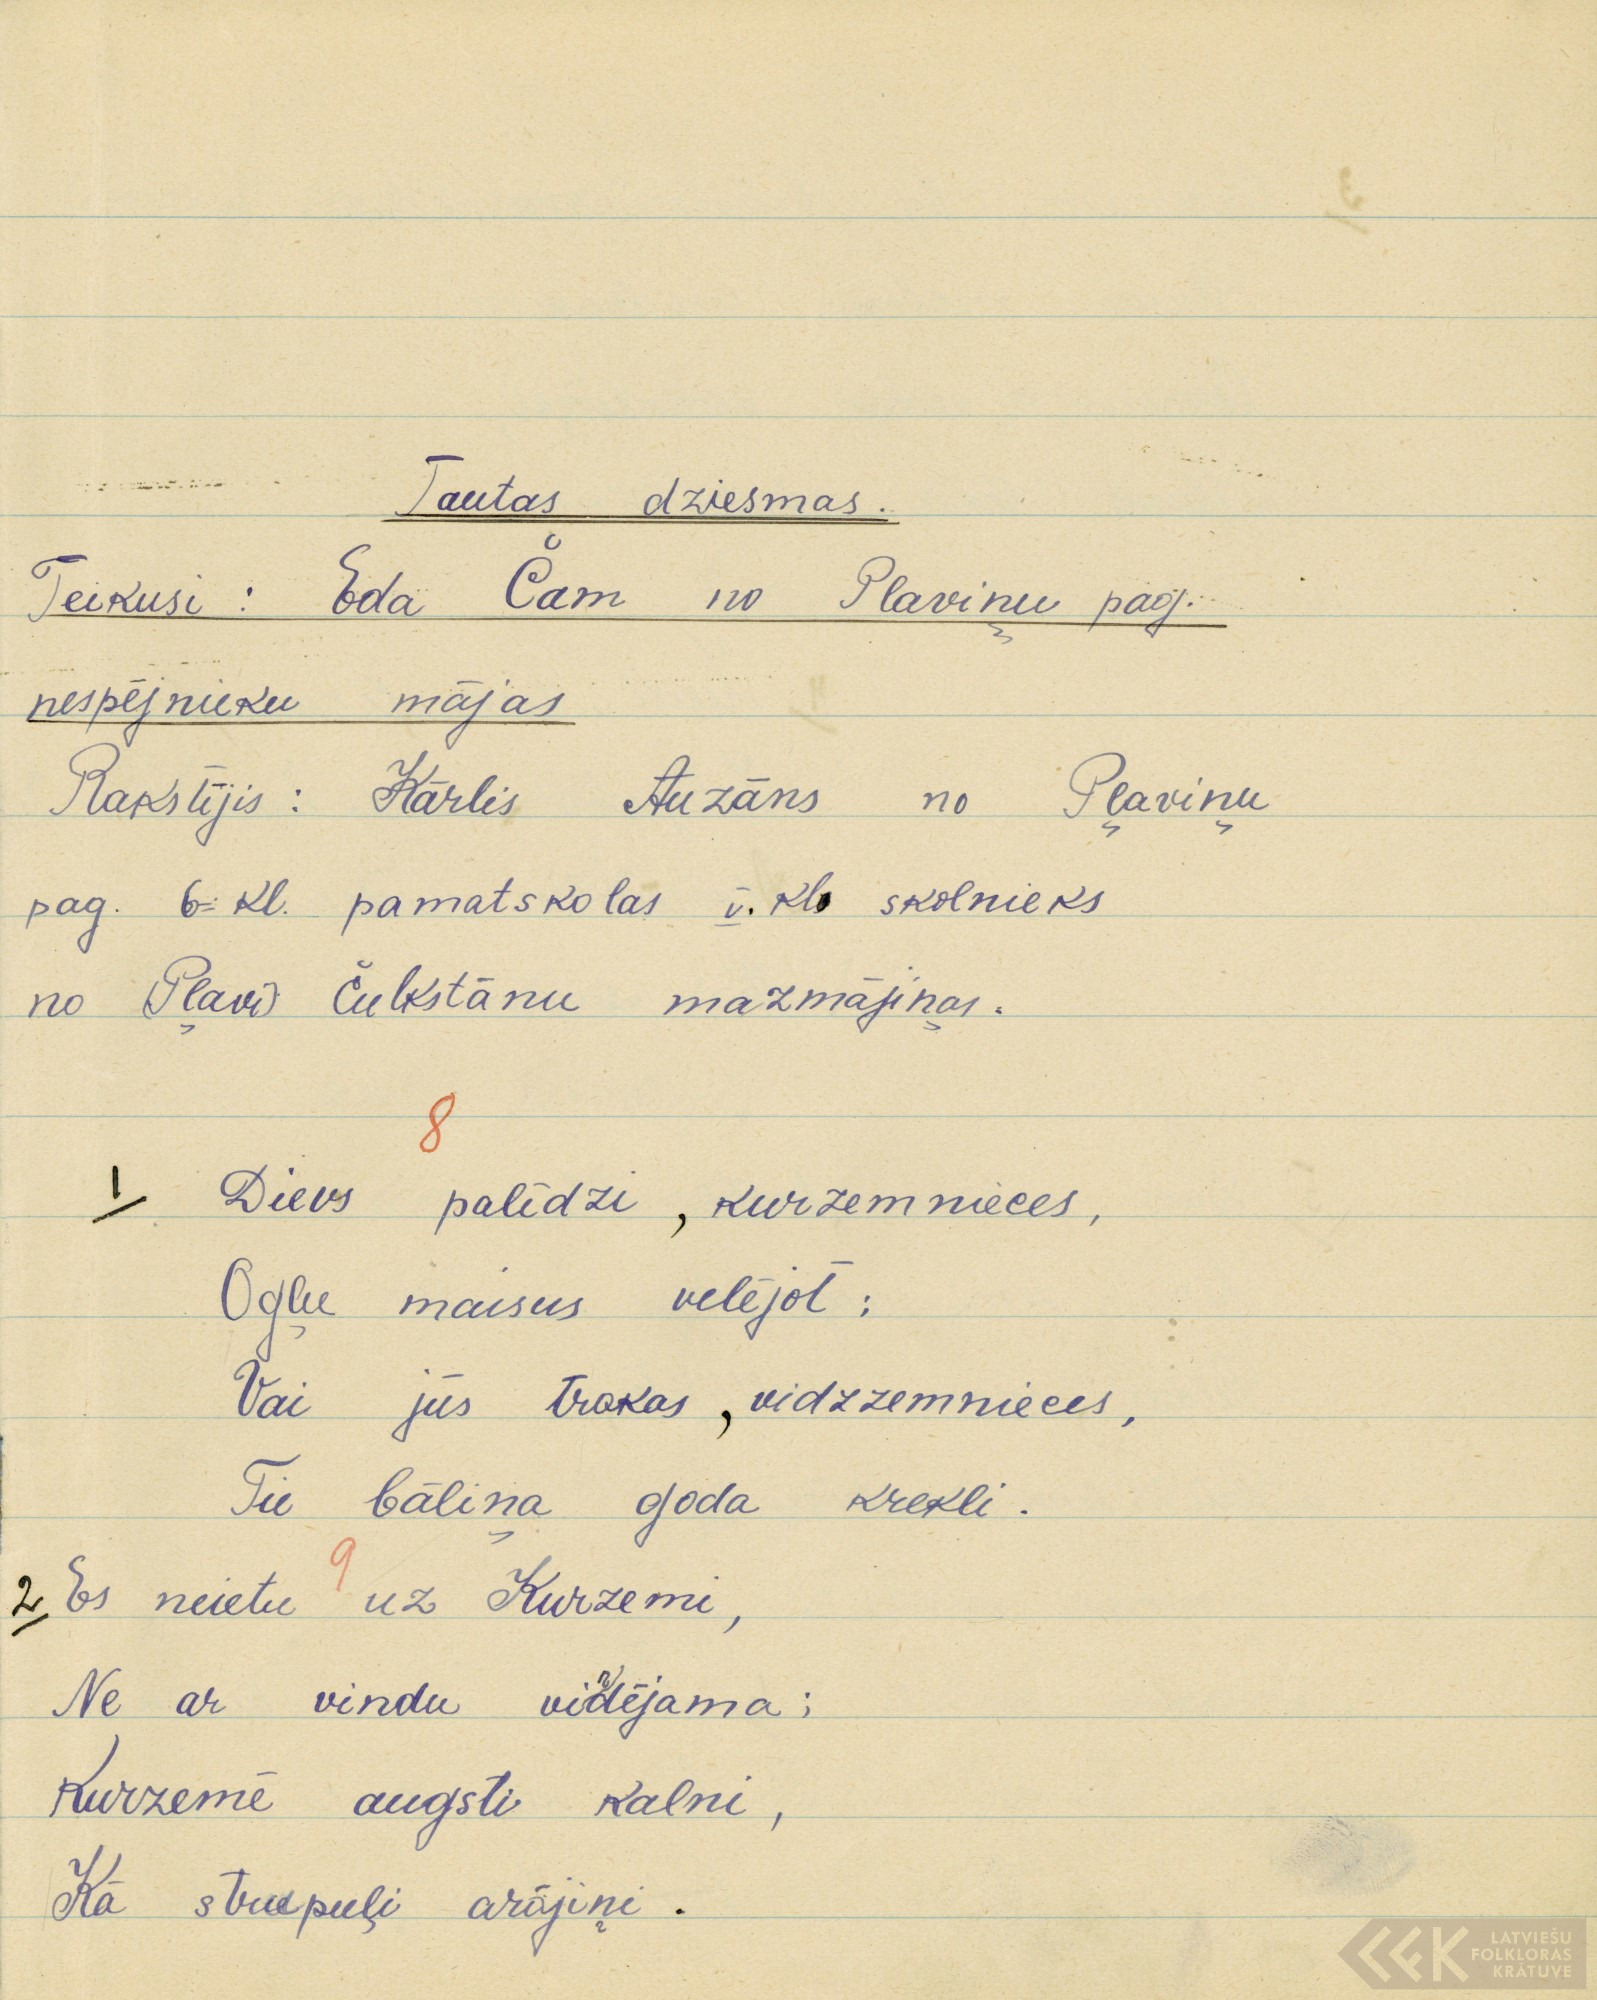 Tautas dziesmas.
Teikusi: Eda Čam no Plaviņu pag.
nespējnieku mājas
Rakstījis: Kārlis Auzāns no Pļaviņu
pag. 6 kl. pamatskolas V. kl. skolnieks
no (Pļavi) Čulkstānu mazmājiņas.
8
1 Dievs palīdzi, kurzemnieces,
Ogļu maisus velējot;
Vai jūs trakas, vidzzemnieces,
Tie bāliņa goda krekli.
9
2 Es neietu uz Kurzemi,
Ne ar vindu vindējama;
Kurzemē augsti kalni,
Kā strupuļi arājiņi.
LATVIEŠU
FOLKLORAS
KRĀTUVE